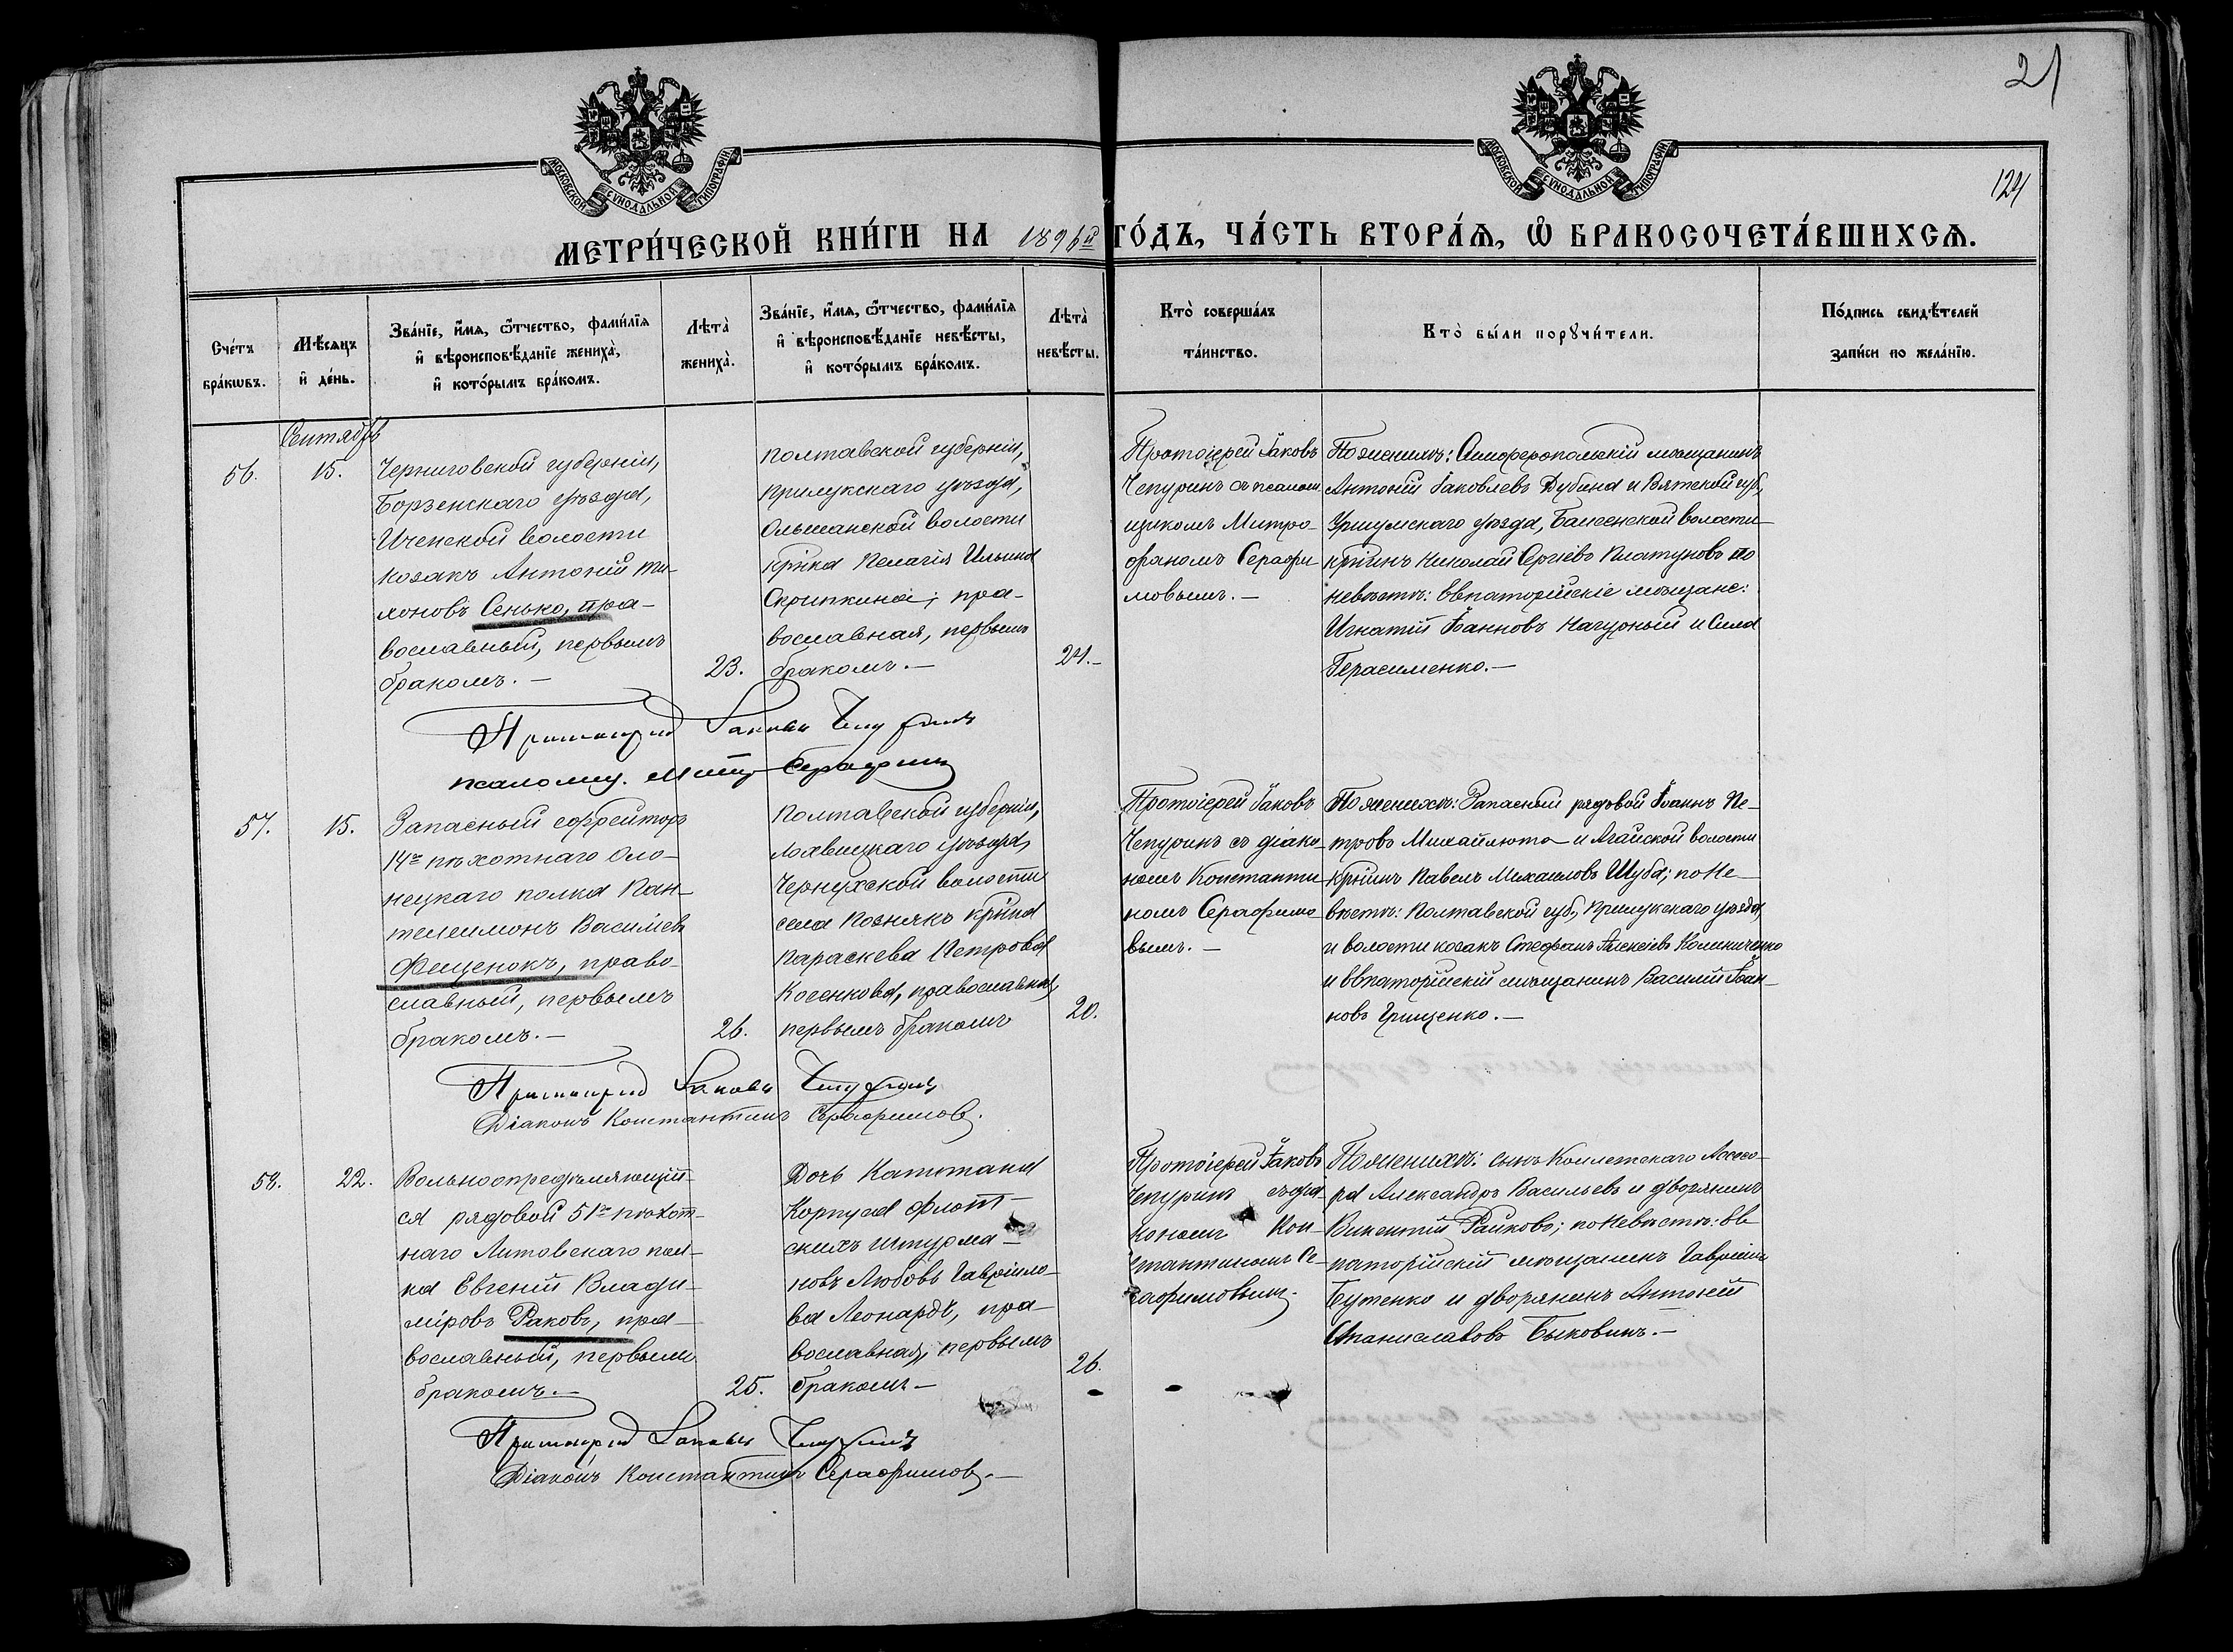 21
124
МОСКОВСКОЙ СУНОДАЛЬНОЙ ТИПОГРАФІИ
МОСКОВСКОЙ СУНОДАЛЬНОЙ ТИПОГРАФІИ
МЕТРИ́ЧЕСКОЙ КНИ́ГИ НА 1896й ГО́ДЪ, ЧА́СТЬ ВТОРА́Ѧ, Ѽ БРАКОСОЧЕТА́ВШИХСѦ.
Сче́тъ
бра́кѡвъ.
Мѣ́сѧцъ
и҆ де́нь.
Зва́нїе, и҆́мѧ, ѻ҆́тчество, фами́лїѧ
и҆ вѣроисповѣ́данїе жениха̀,
и҆ кото́рымъ бра́комъ.
Лѣта̀
жениха̀.
Зва́нїе, и҆́мѧ, ѻ҆́тчество, фами́лїѧ
и҆ вѣроисповѣ́данїе невѣ́сты,
и҆ кото́рымъ бра́комъ.
Лѣта̀
невѣ́сты.
Кто̀ соверша́лъ
та́инство.
Кто̀ бы́ли порꙋчи́тели.
По́дпись свидѣ́телей
за́писи по жела́нїю.
Сентябрь
56.
15.
Черниговской губерніи,
Борзенскаго уѣзда,
Иченской волости
козакъ Антоній Ти-
хоновъ Сенько, пра-
вославный, первымъ
бракомъ.-
23.
Полтавской губерніи,
Прилукскаго уѣзда,
Ольшанской волости
кр҃нка Пелагія Ильина
Скрипкина; пра-
вославная, первымъ
бракомъ.-
21.-
Протоіерей Іаковъ
Чепуринъ съ псалом
щикомъ Митро-
фаномъ Серафи
мовымъ.-
По женихѣ: Симферопольскій мѣщанинъ
Антоній Іаковлевъ Дубина и Вятской губ.,
Уржумскаго уѣзда, волости
кр҃нинъ Николай Сергіевъ Платуновъ по
невѣстѣ: Евпаторійскіе мѣщане:
Игнатій Іоанновъ Нагурный и Сила
Герасименко.-
Протоіерей Іаковъ Чепуринъ
псаломщ. Митр. Серафим
57.
15.
Запасный ефрейторъ
14го пѣхотнаго Оло-
нецкаго полка Пан-
телеимонъ Василіевъ
Фещенокъ, право-
славный, первымъ
бракомъ.-
26.
Полтавской губерніи,
Лохвицкаго уѣзда,
Чернухской волости
села Познякъ кр҃нка
Параскева Петрова
Косенкова, православная,
первымъ бракомъ
20.
Протоіерей Іаковъ
Чепуринъ съ діако-
номъ Константи-
номъ Серафимо
вымъ.-
По женихѣ: Запасный рядовой Іоаннъ Пе-
тровъ Михайлюта и Агайской волости
кр҃нинъ Павелъ Михаиловъ Шуба; по не-
вѣстѣ: Полтавской губ., Прилукскаго уѣзда,
и волости козакъ Стефанъ Алексіевъ Колиниченко
и Евпаторійскій мѣщанинъ Василій Іоан-
новъ Грищенко.-
Протоіерей Іаковъ Чепуринъ
Діаконъ Константинъ Серафимовъ.
58.
22.
Вольноопредѣляющій-
ся рядовой 51го пѣхот-
наго Литовскаго пол-
ка Евгеній Влади-
міровъ Раковъ, пра-
вославный, первымъ
бракомъ.-
25.
Дочь Капитана
Корпуса флот-
скихъ штурма-
новъ Любовь Гавріило-
ва Леонардъ, пра-
вославная, первымъ
бракомъ.-
26.
Протоіерей Іаковъ
Чепуринъ съ діа-
кономъ Кон-
стантиномъ Се-
рафимовымъ.
По женихѣ: сынъ Коллежскаго Ассесо-
ра Александръ Васильевъ и дворянинъ
Викентій Райковъ; по невѣстѣ: Ев-
паторійскій мѣщанинъ Гавріилъ
Бутенко и дворянинъ Антоній
Станиславовъ Быковинъ.-
Протоіерей Іаковъ Чепуринъ
Діаконъ Константинъ Серафимовъ.-